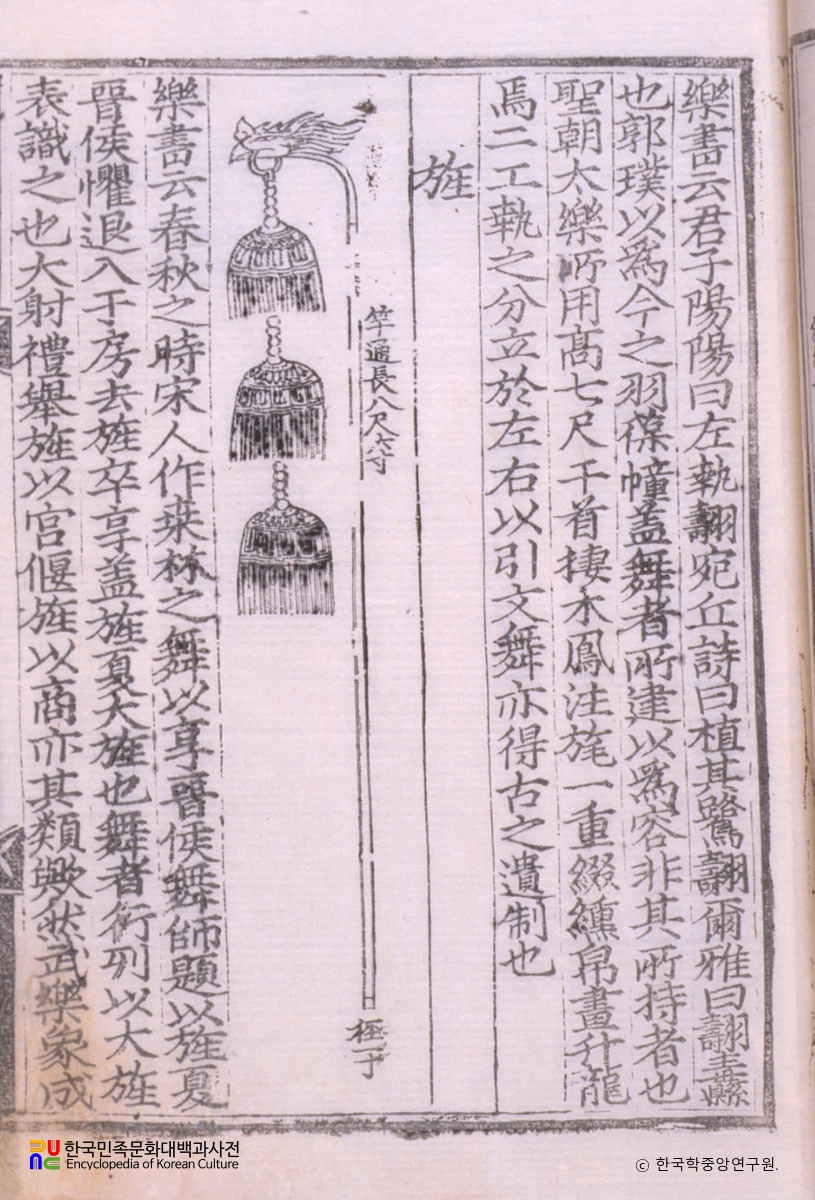 樂書云君子陽陽曰左執翿宛丘詩曰植其鷺翿爾雅曰翿纛
也郭璞以爲今之羽葆幢盖舞者所建以爲容非其所持者也
聖朝太樂所用髙七尺干首捿木鳳注旄一重綴纁帛畫升龍
焉二工執之分立於左右以引文舞亦得古之遺制也
旌
竿通長八尺六寸
徑一寸
樂書云春秋之時宋人作桒林之舞以享晉侯舞師題以旌夏
晉侯懼退入于房去旌卒享盖旌夏大旌也舞者行列以大旌
表識之也大射禮舉旌以宮偃旌以商亦其類歟然武樂象成
한국민족문화대백과사전
Encyclopedia of Korean Culture
© 한국학중앙연구원.